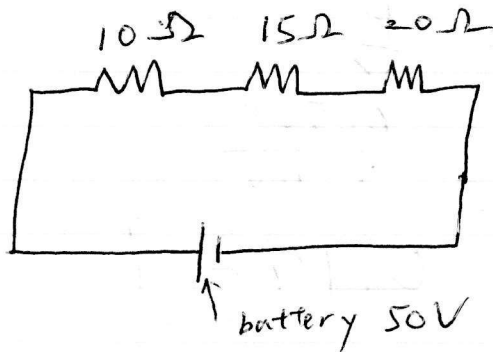 10Ω 15Ω 20Ω
battery 50V